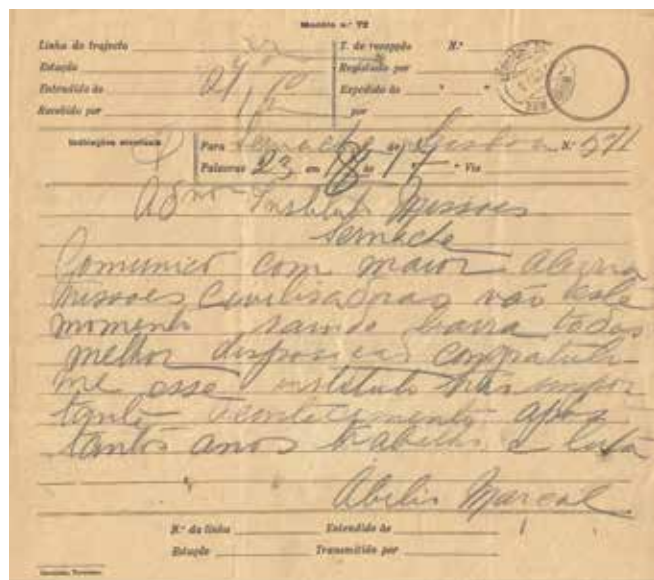 Modelo n.º 72
Linha do trajecto T. da recepção N.º
Estação Registado por
Entendido ás Expedido ás
Recebido por por
Indicações eventuais Para Sernache de Lisboa N.º 571
Palavras 23 em 18 ás 17 Via
Instituto Missoes
Sernache
Comunico com maior alegria
missoes civilisadoras vão neste
momento saindo barra todos
melhor disposição congratulo
me esse instituto mais impor
tante apos
tantos anos trabalho e luta
Abilio Marçal
N.º da linha Entendido ás
Estação Transmitido por